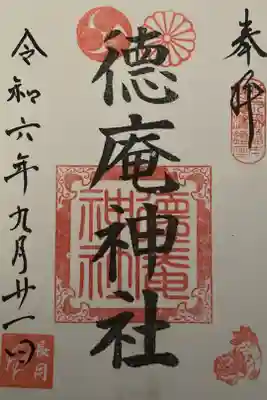 奉拝
德庵神社
令和六年九月廿一日
德庵神社
長月